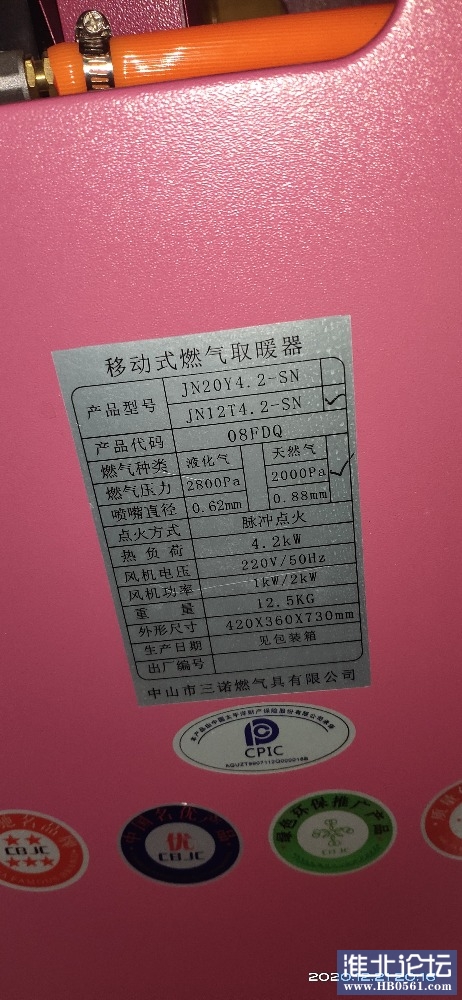 移动式燃气取暖器
产品型号 JN20Y4.2-SN
JN12T4.2-SN ✓
产品代码 08FDQ
燃气种类 液化气 天然气
燃气压力 2800Pa 2000Pa ✓
喷嘴直径 0.62mm 0.88mm
点火方式 脉冲点火
热负荷 4.2kW
风机电压 220V/50Hz
风机功率 1kW/2kW
重量 12.5KG
外形尺寸 420X360X730mm
生产日期 见包装箱
出厂编号
中山市三诺燃气具有限公司
本产品由中国太平洋财产保险股份有限公司承保
CPIC
CBJC
中国名优产品
优
CBJC
绿色环保推广产品
CBJC
质量
2020.12.21 20:16
淮北论坛
www.HB0561.com